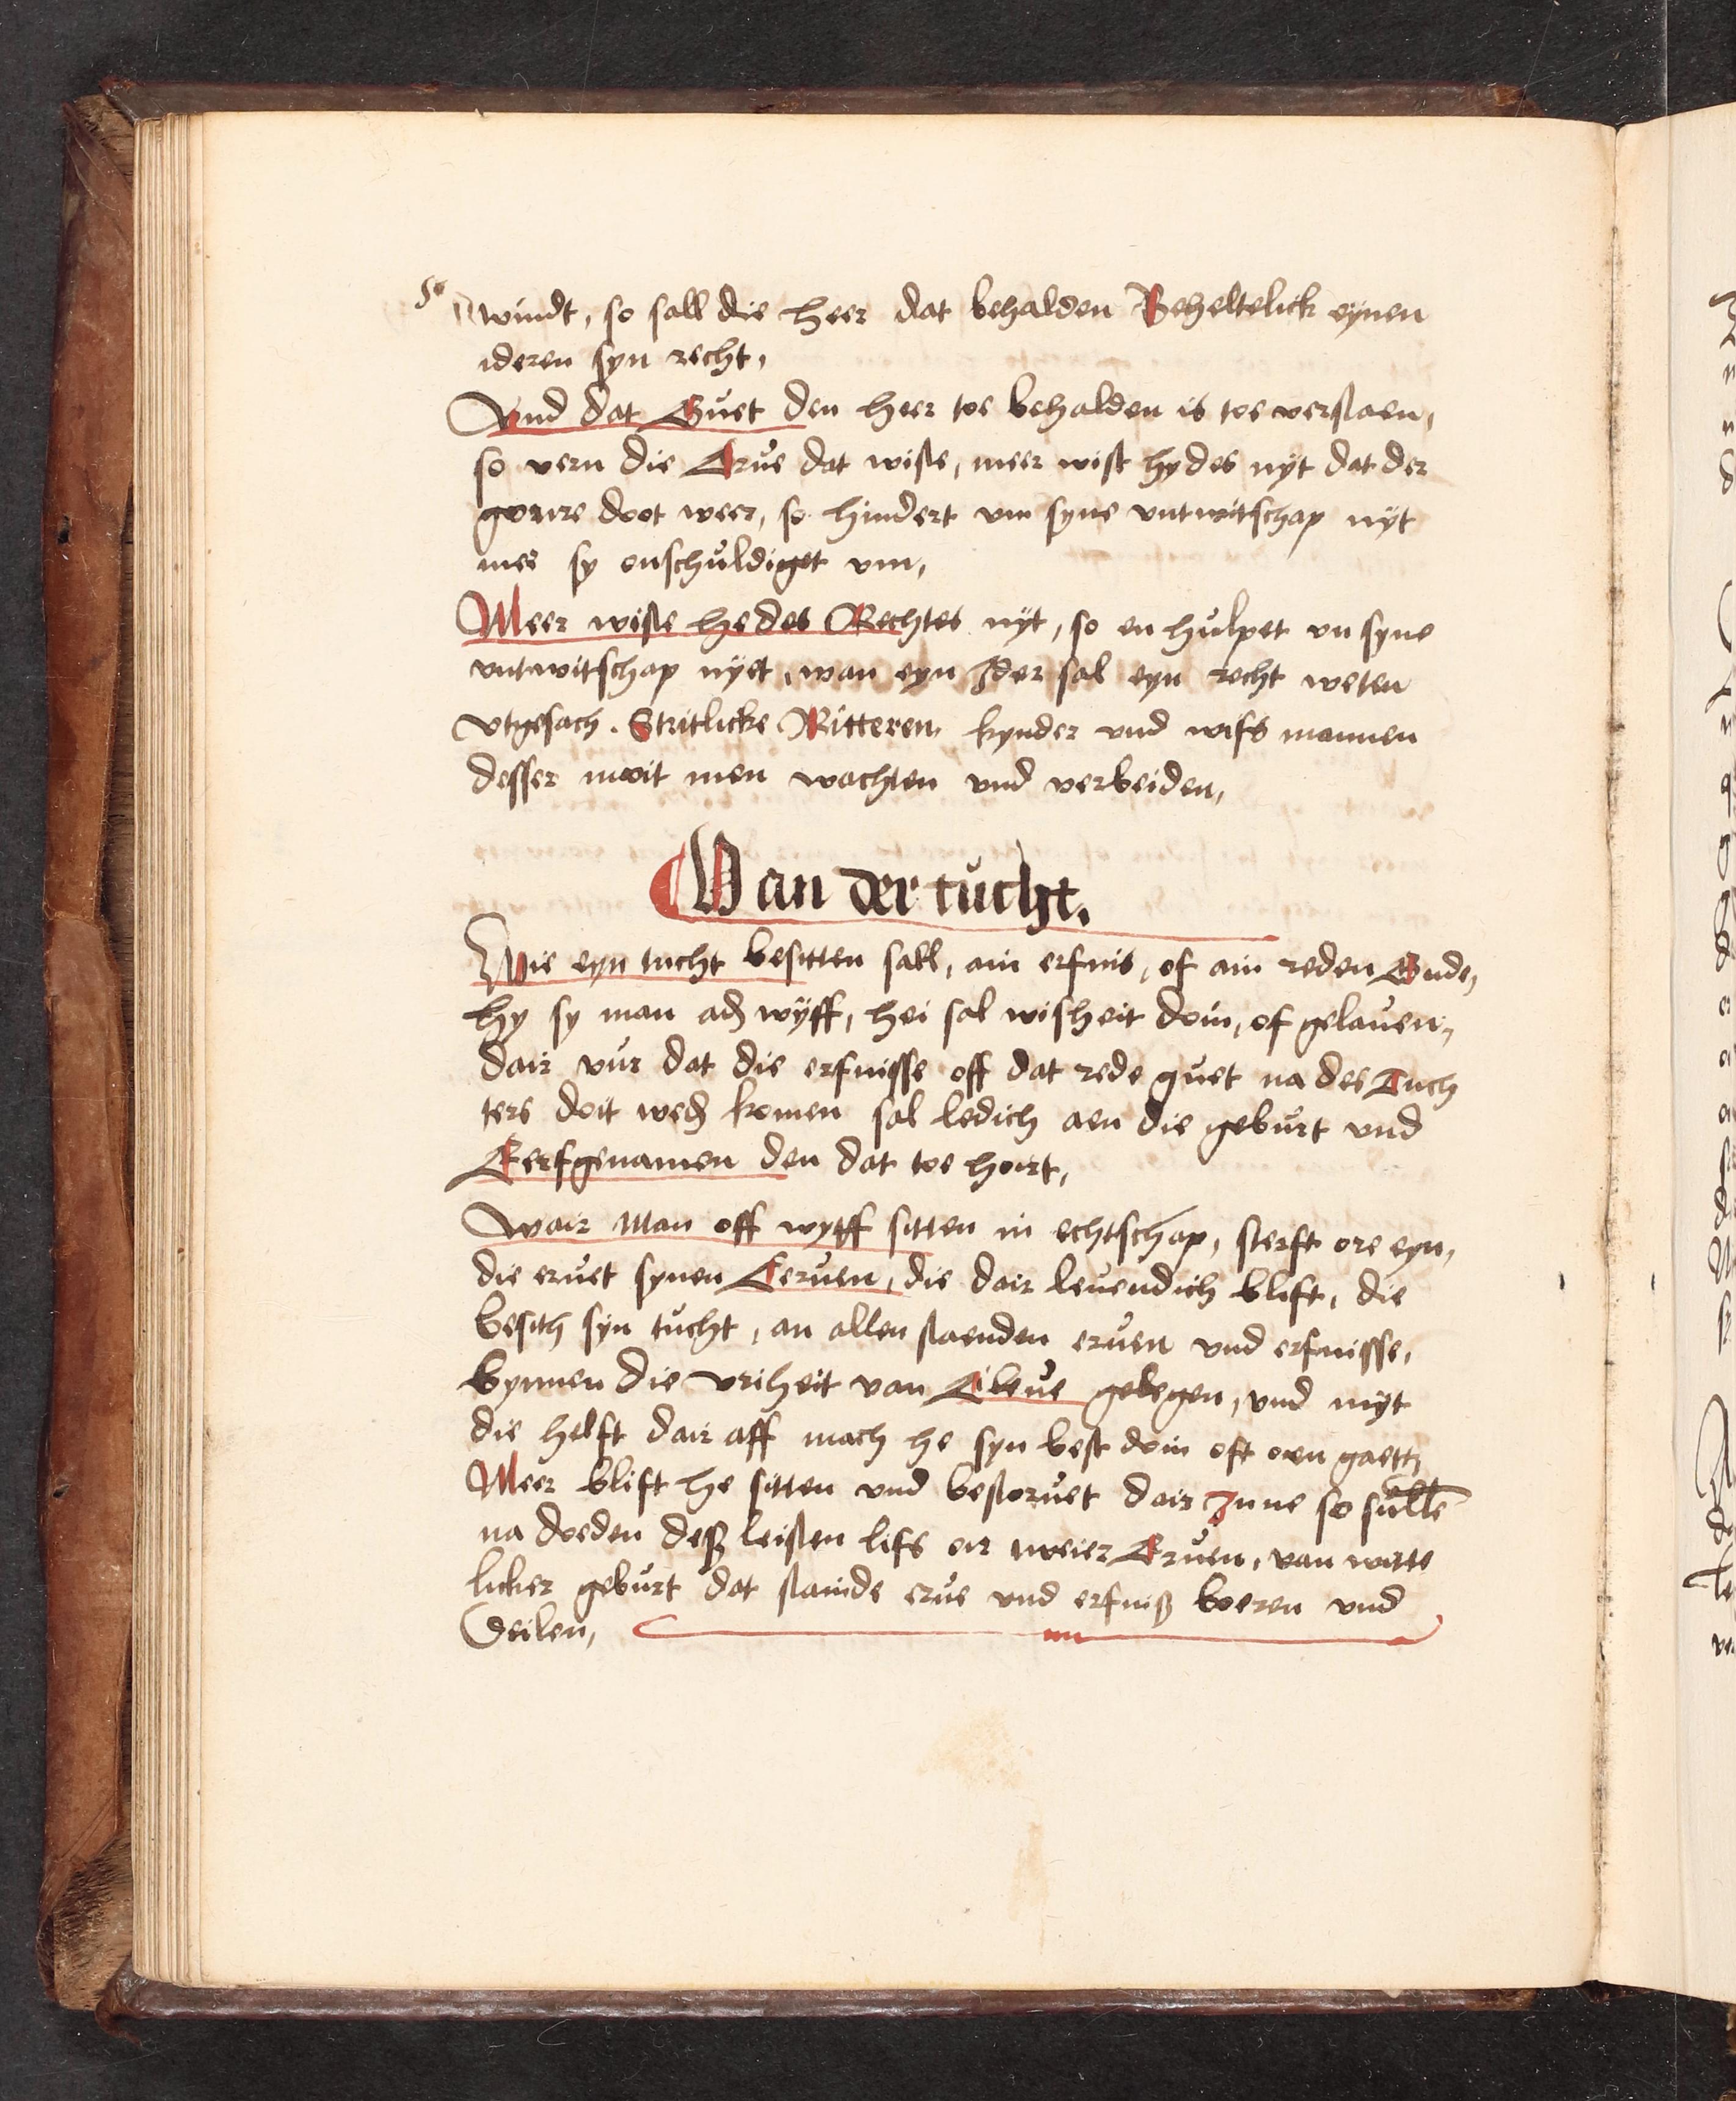 windt, so sall die heer dat behalden Beheltelick eynen
ideren syn recht,
Vnd dat Guet den heer toe behalden is toe verstaen,
so vern die Erue dat wiste, meer wist hy des nÿt dat der
doot weer, so hindert vm syne vntwitschap nÿt
mer sy onschuldiget vm,
Meer wiste he des Rechtes nÿt, so en hulpet vn syne
vntwitschap nÿet, wan eyn Jder sal eyn recht weten
vtgesach. Stritlicke Ritteren kynder vnd wifs mannen
desser moit men wachten vnd verbeiden,
Van der tucht.
Wie eyn tucht besitten sall, ain erfnis, of ain reden Gude,
hy sy man ader wÿff, hei sal wisheit doin, of gelauen,
dair vur dat die erfnisse off dat rede guet na des Tuch
ters doit weder komen sal ledich aen die geburt vnd
Eerfgenamen den dat toe hoirt,
Wair Man off wyff sitten in echtschap, sterft ore eyn,
die eruet synen Eeruen, die dair leuendich blift, die
besith syn tucht, an allen staenden eruen vnd erfnisse,
bynnen die vriheit van Cleue gelegen, vnd myt
die helft dair aff mach he syn best doin oft oen gaett,
Meer blift he sitten vnd bestoruet dair Jnne so sulle
na doeden deß leisten lifs oir tweier Eruen, van witte
licker geburt dat stainde erue vnd erfniß boeren vnd
Deilen,